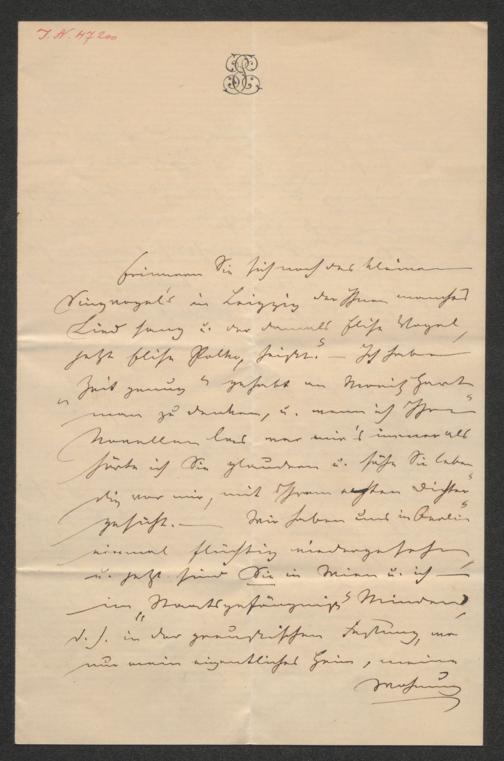 J. N. 47200
Erinnern Sie sich noch des kleinen
Singvogels in Leipzig der Ihnen manches
Lied sang u. der damals Elise Vogel,
jetzt Elise Polko, heißt? – Ich habe
"Zeit genug" gehabt an Moritz Hart-
mann zu denken, u. wenn ich Ihre
Novellen las war mir's immer als
hörte ich Sie plaudern u. sähe Sie leben-
dig vor mir, mit Ihrem echten Dichter-
gesicht. – Wir haben uns in Berlin
einmal flüchtig wiedergesehen,
u. jetzt sind Sie in Wien u. ich –
im "Staatsgefängniß" Minden,
d. h. in der preußischen Festung, wo
nun mein eigentliches Heim, meine
Wohnung